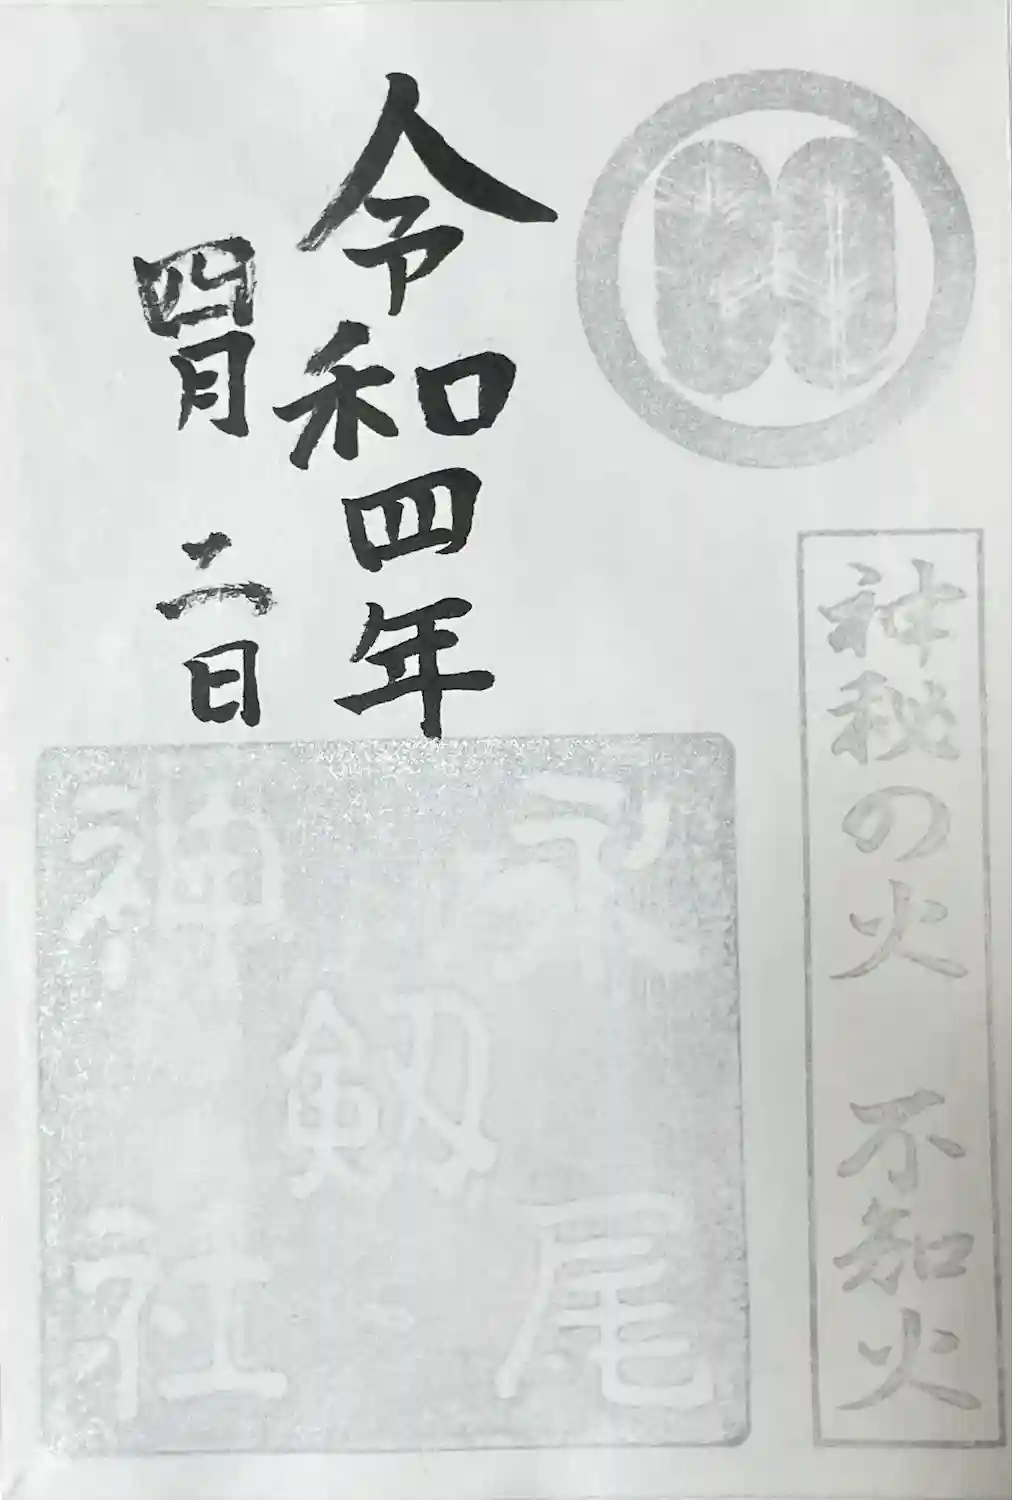 神秘の火　不知火
令和四年
四月二日
永尾
剱
神社